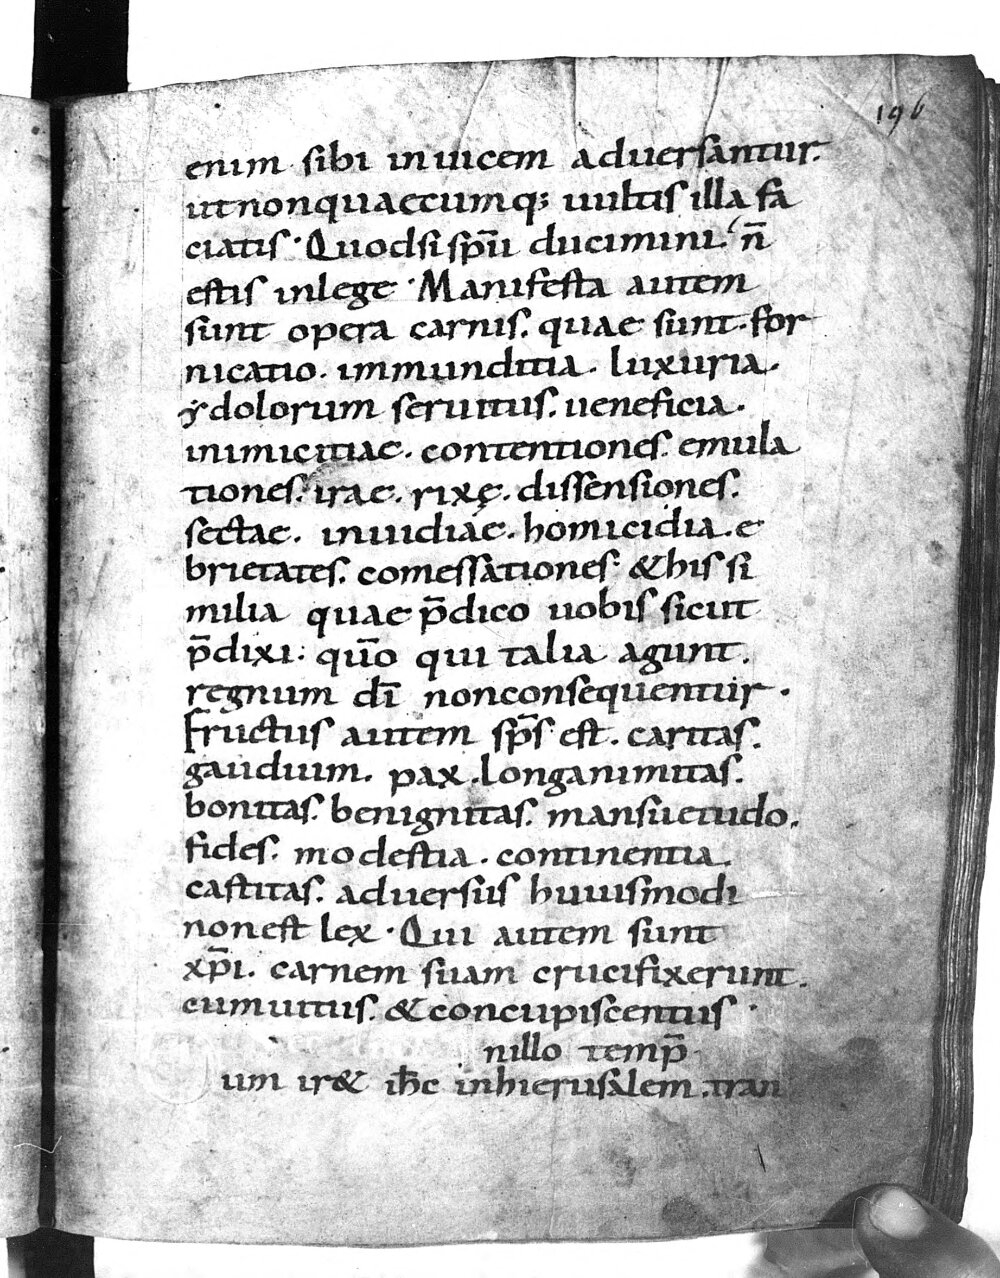 196
enim sibi inuicem aduersantur.
ut non quaecumq; uultis illa fa
ciatis · Quodsi sp̄u ducimini. n̄
estis inlege · Manifesta autem
sunt opera carnis. quae sunt. for
nicatio. immunditia. luxuria.
ydolorum seruitus. ueneficia.
inimicitiae. contentiones. emula
tiones. irae. rixę. dissensiones.
sectae. inuidiae. homicidia. e
brietates. comessationes. & his si
milia quae p̄dico uobis sicut
p̄dixi: qūo qui talia agunt.
regnum dī nonconsequentur.
Fructus autem sp̄s est. caritas.
gaudium. pax. longanimitas.
bonitas. benignitas. mansuetudo.
fides. modestia. continentia.
castitas. aduersus huiusmodi
non est lex · Qui autem sunt
xp̄i. carnem suam crucifixerunt.
cum uitiis. & concupiscentiis ·
nillo temp̄
um ir& ih̄c inhierusalem. tran